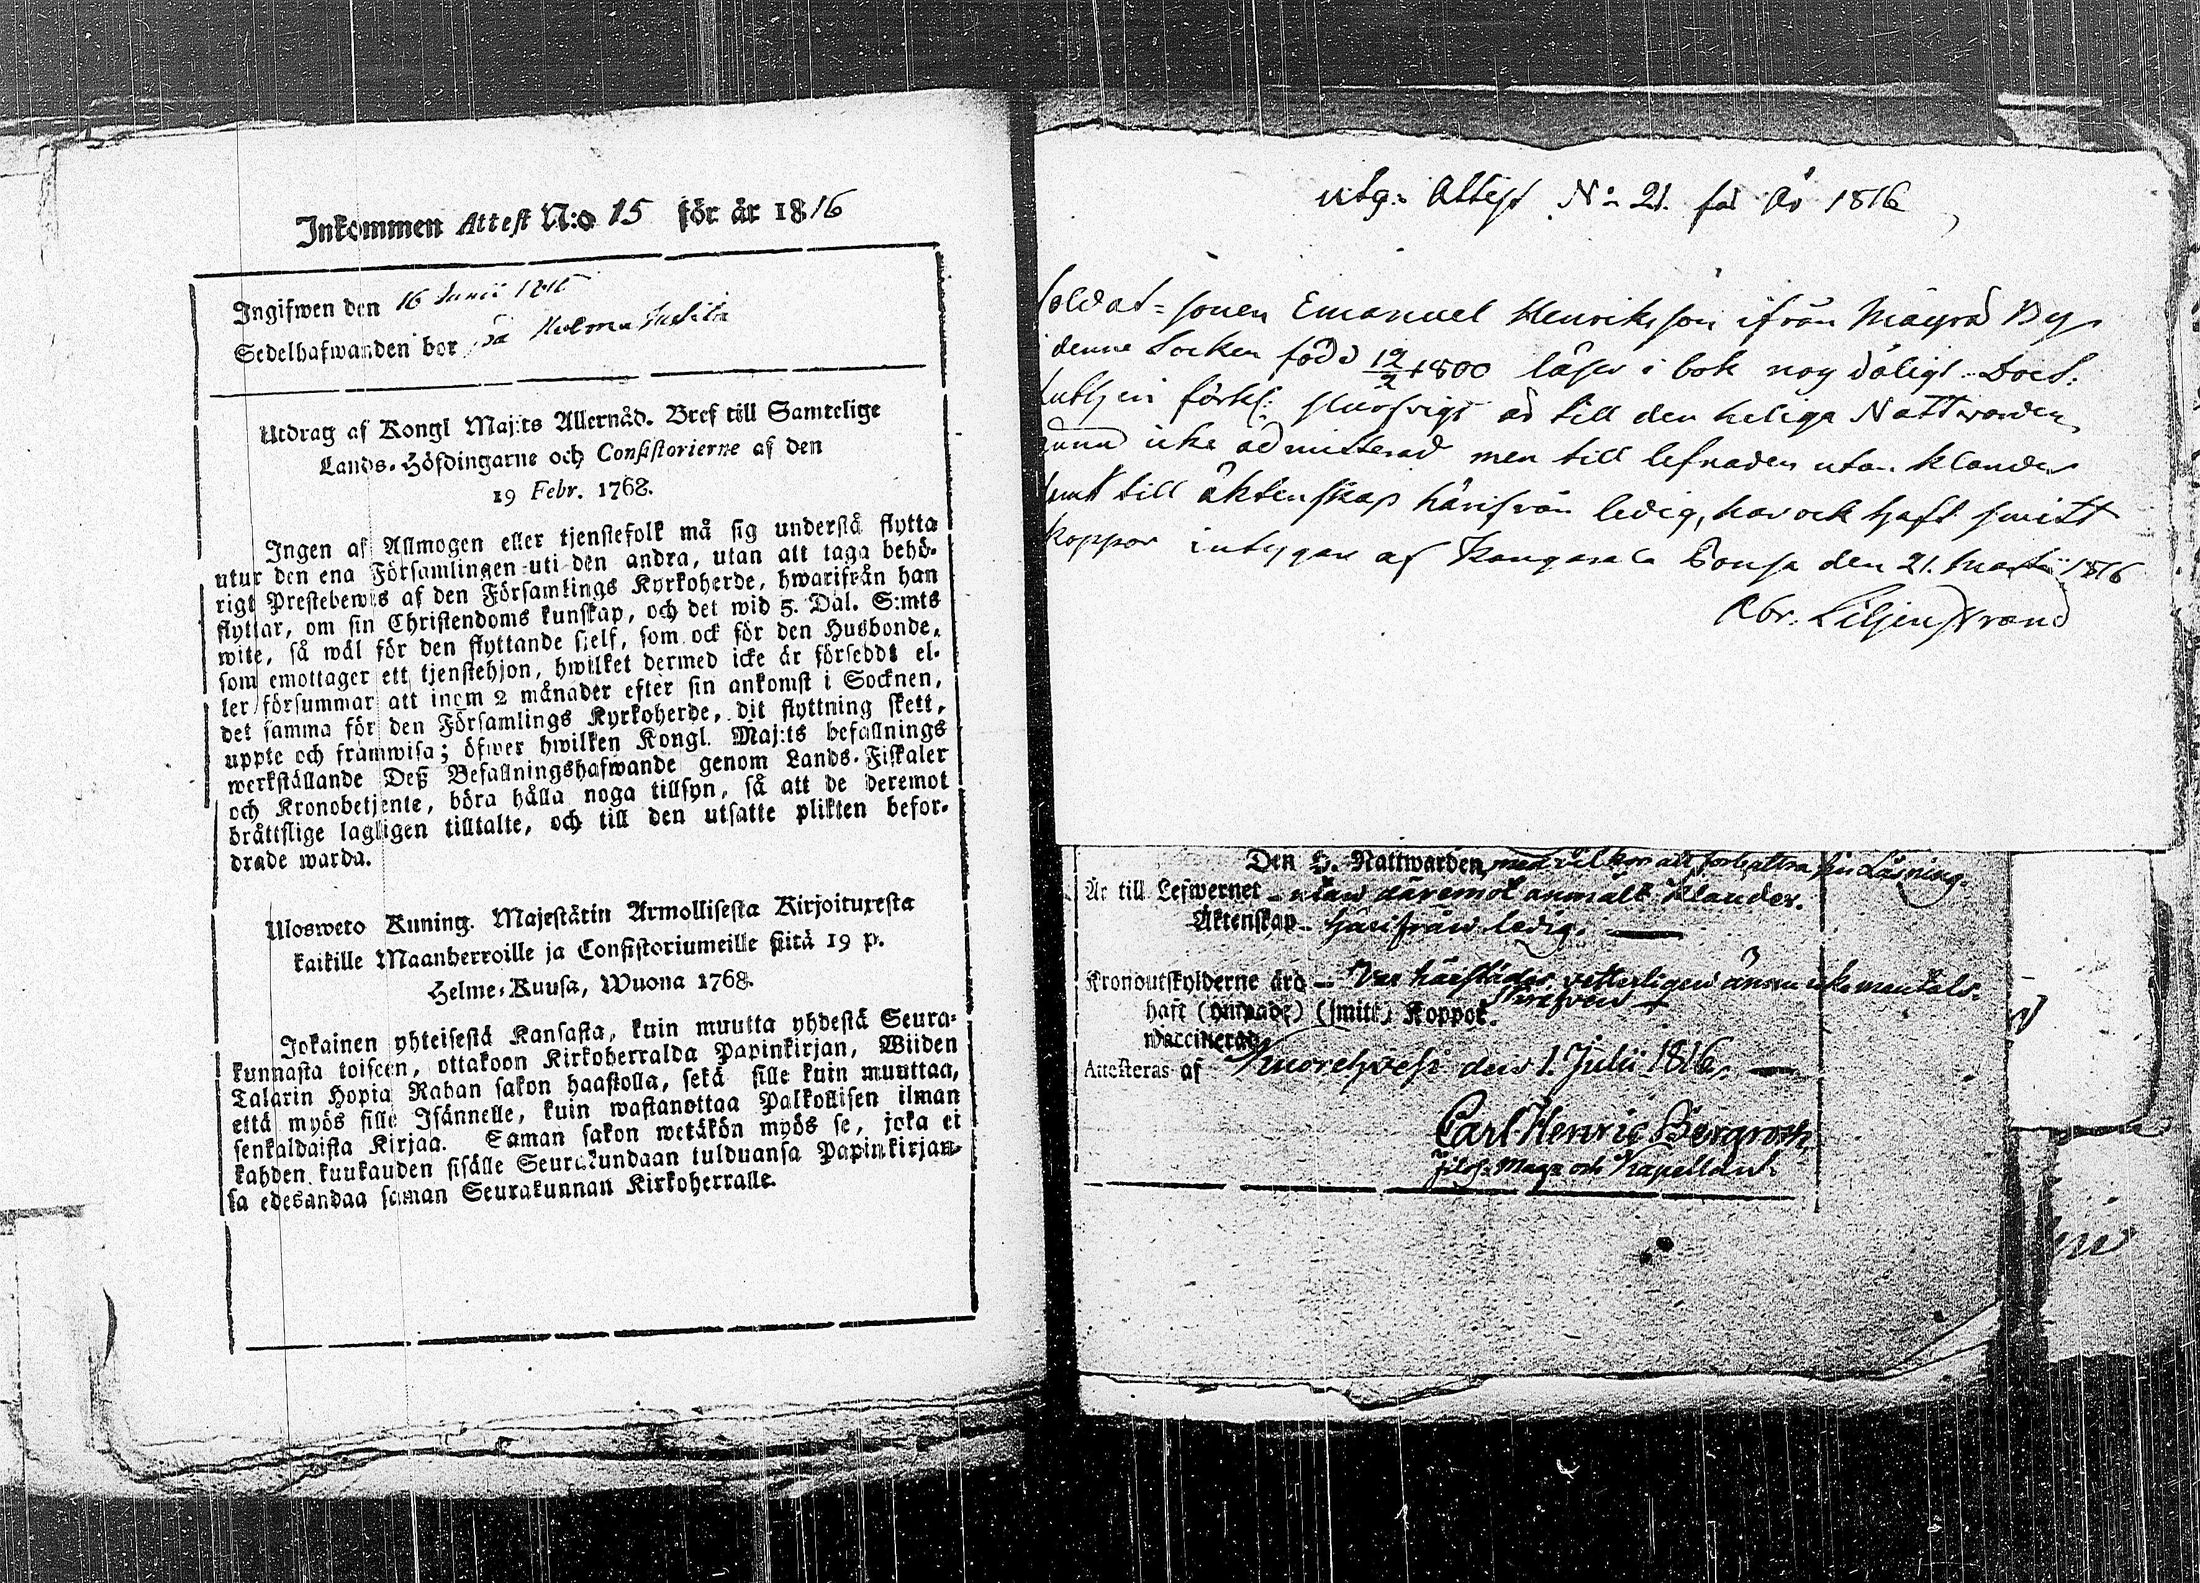 Inkommen Attest N:o 15 för år 1816
Ingifwen den 16 Junii 1816
Sedelhafwanden bor på
Utdrag af Kongl Maj:ts Allernåd. Bref till Samtelige
Lands-Höfdingarne och Consistorierne af den
19 Febr. 1768.
Ingen af Allmogen eller tjenstefolk må sig understå flytta
utur den ena Församlingen uti den andra, utan att taga behö-
rigt Prestebewis af den Församlings Kyrkoherde, hwarifrån han
flyttar, om sin Christendoms kunskap, och det wid 5. Dal. S:mts
wite, så wäl för den flyttande sjelf, som ock för den Husbonde,
som emottager ett tjenstehjon, hwilket dermed icke är försedt el-
ler försummar att inom 2 månader efter sin ankomst i Socknen,
det samma för den Församlings Kyrkoherde, dit flyttning skett,
uppte och framwisa; öfwer hwilken Kongl. Maj:ts befallnings
werkställande Deß Befallningshafwande genom Lands-Fiskaler
och Kronobetjente, böra hålla noga tillsyn, så att de deremot
bråttslige lagligen tilltalte, och till den utsatte plikten befor-
drade warda.
Ulosweto Kuning. Majestätin Armollisesta Kirjoituxesta
kaikille Maanherroille ja Consistoriumeille siitä 19 p.
Helme-Kuusa, Wuona 1768.
Jokainen yhteisestä Kansasta, kuin muutta yhdestä Seura-
kunnasta toiseen, ottakoon Kirkoherralda Papinkirjan, Wiiden
Talarin Hopia Rahan sakon haastolla, sekä sille kuin muuttaa,
että myös sille Isännelle, kuin wastanottaa Palkollisen ilman
senkaldaista Kirjaa. Saman sakon wetäkön myös se, joka ei
kahden kuukauden sisälle Seurakundaan tulduansa Papinkirjan-
sa edesandaa saman Seurakunnan Kirkoherralle.
utg: Attest No 21. för år 1816
soldat-sonen Emanuel Henriksson ifrån By
denne Socken född 12/2 1800 läser i bok nog dåligt
förkl: är till den heliga Nattwarden
ännu icke admitterad men till lefnaden utan klander
samt till äktenskap härifrån ledig, har ock haft smitt
koppor intygar af Kangasala den 21. Martii 1816
Abr. Liljenstrand
Den H. Nattwarden med vilkor att förbättra sin Läsning.
Är till Lefwernet utan däremot anmält klander.
Äktenskap härifrån ledig.
Kronoutskylderne ärd
haft (ympade) (smitt.) Koppor.
waccinerad
Attesteras af den 1. Julii 1816.
Carl Henric Bergroth
Philos: Mag: och Kapellan.